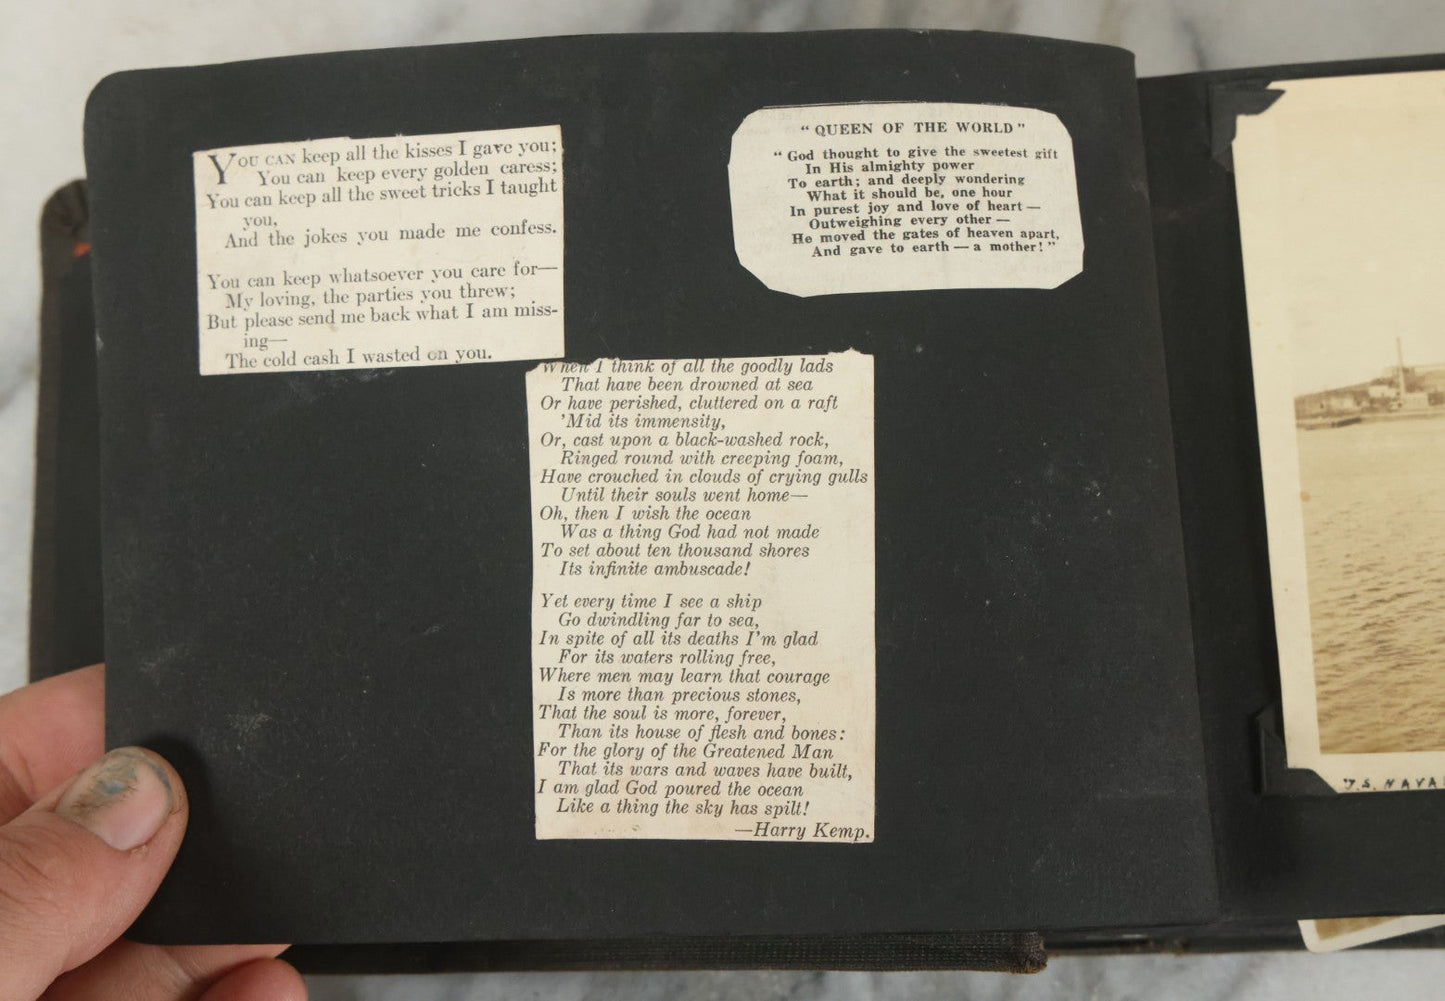 YOU CAN keep all the kisses I gave you;
You can keep every golden caress;
You can keep all the sweet tricks I taught
you,
And the jokes you made me confess.
You can keep whatsoever you care for—
My loving, the parties you threw;
But please send me back what I am miss-
ing—
The cold cash I wasted on you.
"QUEEN OF THE WORLD"
"God thought to give the sweetest gift
In His almighty power
To earth; and deeply wondering
What it should be, one hour
In purest joy and love of heart—
Outweighing every other—
He moved the gates of heaven apart,
And gave to earth—a mother!"
When I think of all the goodly lads
That have been drowned at sea
Or have perished, cluttered on a raft
'Mid its immensity,
Or, cast upon a black-washed rock,
Ringed round with creeping foam,
Have crouched in clouds of crying gulls
Until their souls went home—
Oh, then I wish the ocean
Was a thing God had not made
To set about ten thousand shores
Its infinite ambuscade!
Yet every time I see a ship
Go dwindling far to sea,
In spite of all its deaths I'm glad
For its waters rolling free,
Where men may learn that courage
Is more than precious stones,
That the soul is more, forever,
Than its house of flesh and bones:
For the glory of the Greatened Man
That its wars and waves have built,
I am glad God poured the ocean
Like a thing the sky has spilt!
—Harry Kemp.
U.S. NAVA